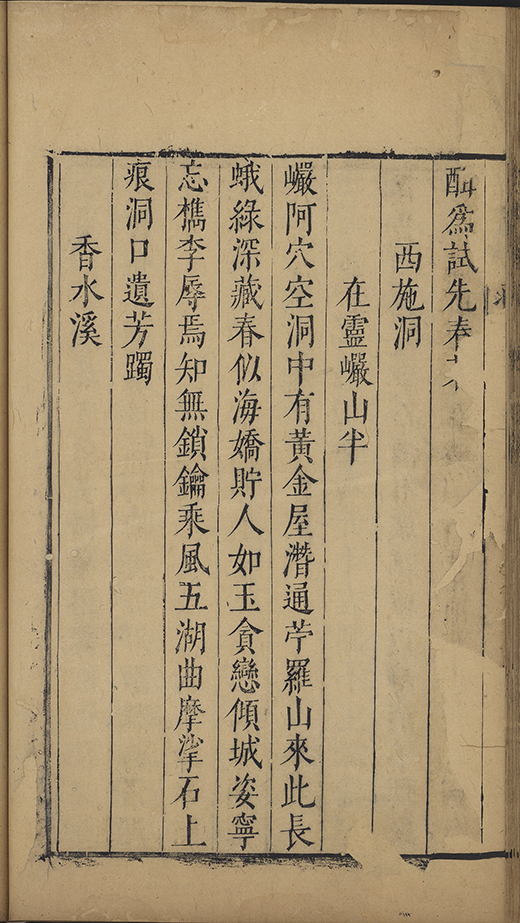 酣爲試先奉
西施洞
在靈巗山半
巗阿穴空洞中有黃金屋潛通苧羅山來此長
蛾綠深藏春似海嬌貯人如玉貪戀傾城姿寧
忘檇李辱焉知無鎖鑰乘風五湖曲摩挲石上
痕洞口遺芳躅
香水溪